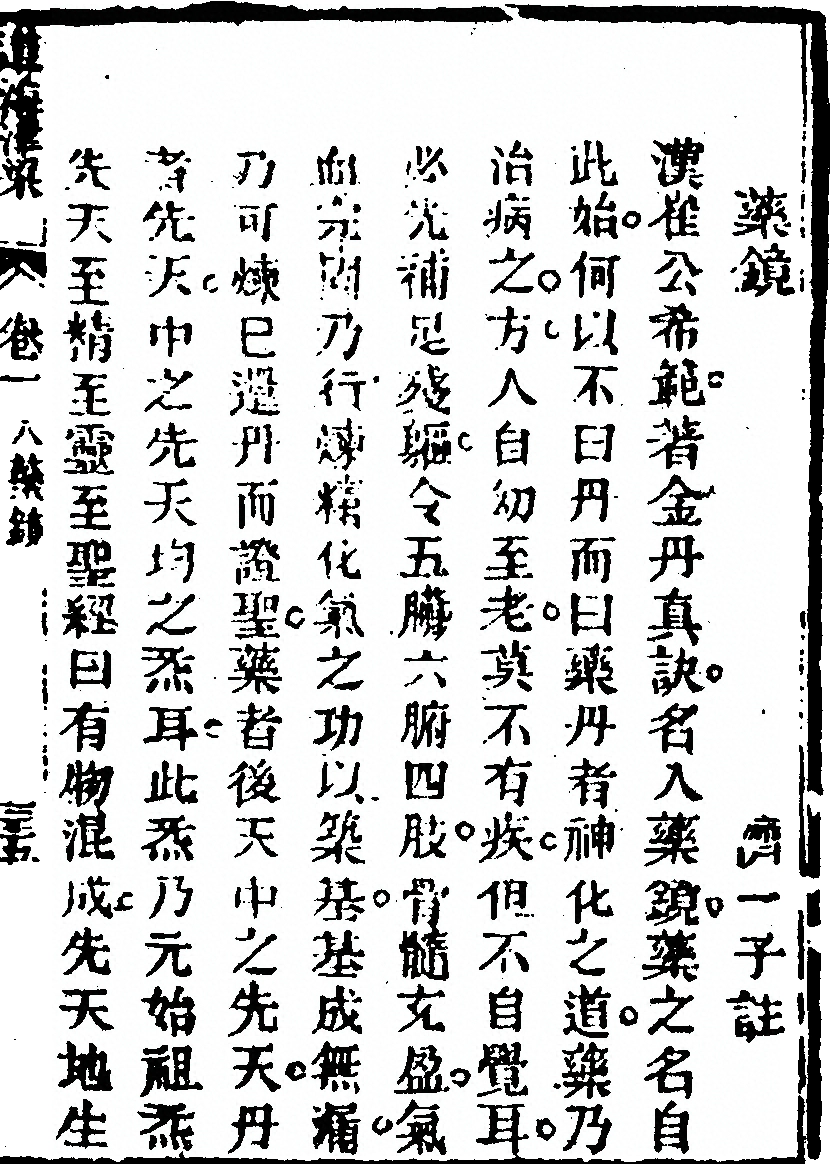 藥鏡
濟一子註
漢崔公希範著金丹真訣名入藥鏡藥之名自
此始何以不曰丹而曰藥丹者神化之道藥乃
治病之方人自幼至老莫不有疾但不自覺耳
必先補足殘軀令五臟六腑四肢骨髓充盈氣
血宗固乃行煉精化氣之功以築基基成無漏
乃可煉已還丹而證聖藥者後天中之先天丹
者先天中之先天均之炁耳此炁乃元始祖炁
先天至精至靈至聖經曰有物混成先天地生
道海津梁
卷一
入藥鏡
三五